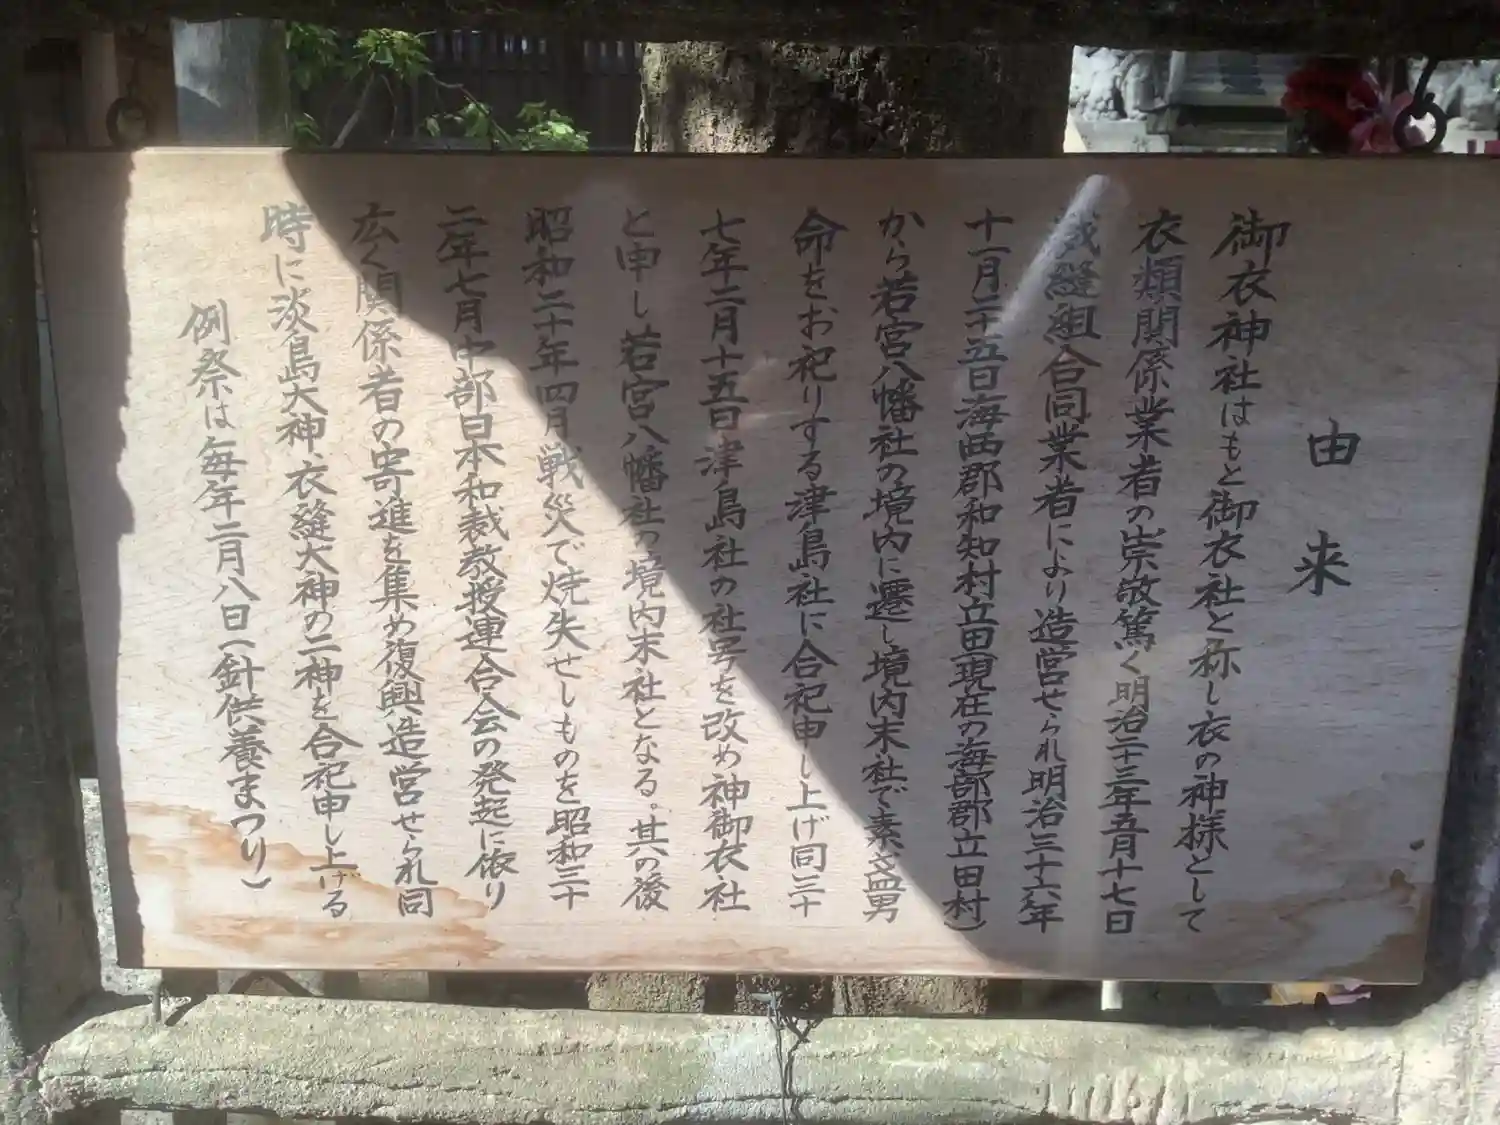 由来
御衣神社はもと御衣社と称し衣の神様として
衣類関係業者の崇敬篤く明治二十三年五月十七日
裁縫組合同業者により造営せられ明治三十六年
十一月二十五日海西郡和知村立田(現在の海部郡立田村)
から若宮八幡社の境内に遷し境内末社で素盞男
命をお祀りする津島社に合祀申し上げ同三十
七年二月十五日津島社の社号を改め神御衣社
と申し若宮八幡社の境内末社となる。其の後
昭和二十年四月戦災で焼失せしものを昭和三十
二年七月中部日本和裁教授連合会の発起に依り
広く関係者の寄進を集め復興造営せられ同
時に淡島大神、衣縫大神の二神を合祀申し上げる
例祭は毎年二月八日(針供養まつり)